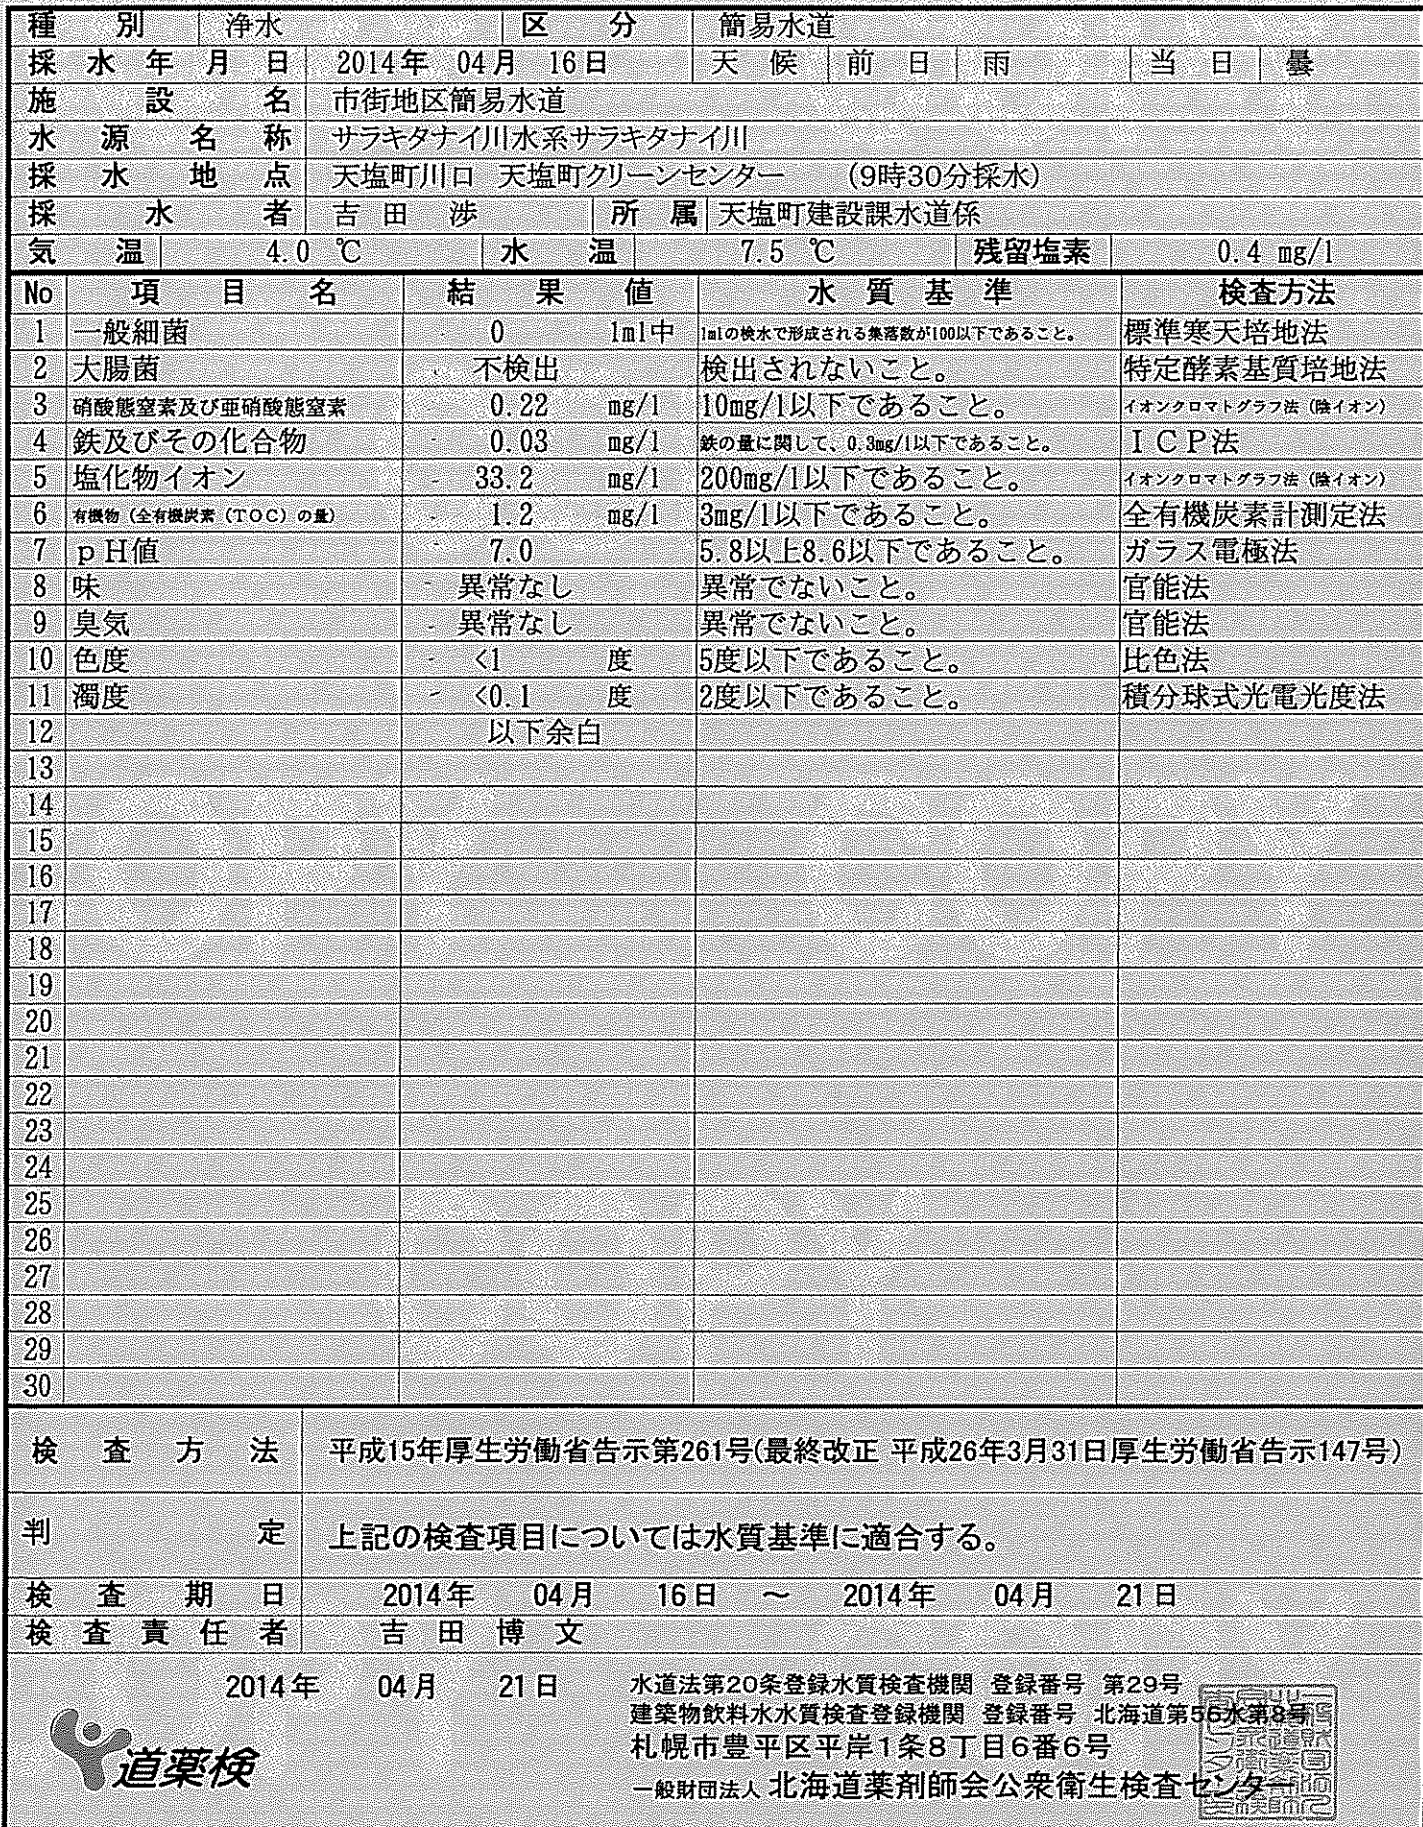 種別 浄水 区分 簡易水道
採水年月日 2014年 04月 16日 天候 前日 雨 当日 曇
施設名 市街地区簡易水道
水源名称 サラキタナイ川水系サラキタナイ川
採水地点 天塩町川口 天塩町クリーンセンター (9時30分採水)
採水者 吉田 渉 所属 天塩町建設課水道係
気温 4.0 ℃ 水温 7.5 ℃ 残留塩素 0.4 mg/l
No 項目名 結果値 水質基準 検査方法
1 一般細菌 0 1ml中 1mlの検水で形成される集落数が100以下であること。 標準寒天培地法
2 大腸菌 不検出 検出されないこと。 特定酵素基質培地法
3 硝酸態窒素及び亜硝酸態窒素 0.22 mg/l 10mg/l以下であること。 イオンクロマトグラフ法(陰イオン)
4 鉄及びその化合物 0.03 mg/l 鉄の量に関して、0.3mg/l以下であること。 ICP法
5 塩化物イオン 33.2 mg/l 200mg/l以下であること。 イオンクロマトグラフ法(陰イオン)
6 有機物(全有機炭素(TOC)の量) 1.2 mg/l 3mg/l以下であること。 全有機炭素計測定法
7 pH値 7.0 5.8以上8.6以下であること。 ガラス電極法
8 味 異常なし 異常でないこと。 官能法
9 臭気 異常なし 異常でないこと。 官能法
10 色度 <1 度 5度以下であること。 比色法
11 濁度 <0.1 度 2度以下であること。 積分球式光電光度法
12 以下余白
13
14
15
16
17
18
19
20
21
22
23
24
25
26
27
28
29
30
検査方法 平成15年厚生労働省告示第261号(最終改正 平成26年3月31日厚生労働省告示147号)
判定 上記の検査項目については水質基準に適合する。
検査期日 2014年 04月 16日 ～ 2014年 04月 21日
検査責任者 吉田博文
2014年 04月 21日
水道法第20条登録水質検査機関 登録番号 第29号
建築物飲料水水質検査登録機関 登録番号 北海道第56水第8号
札幌市豊平区平岸1条8丁目6番6号
一般財団法人 北海道薬剤師会公衆衛生検査センター
道薬検